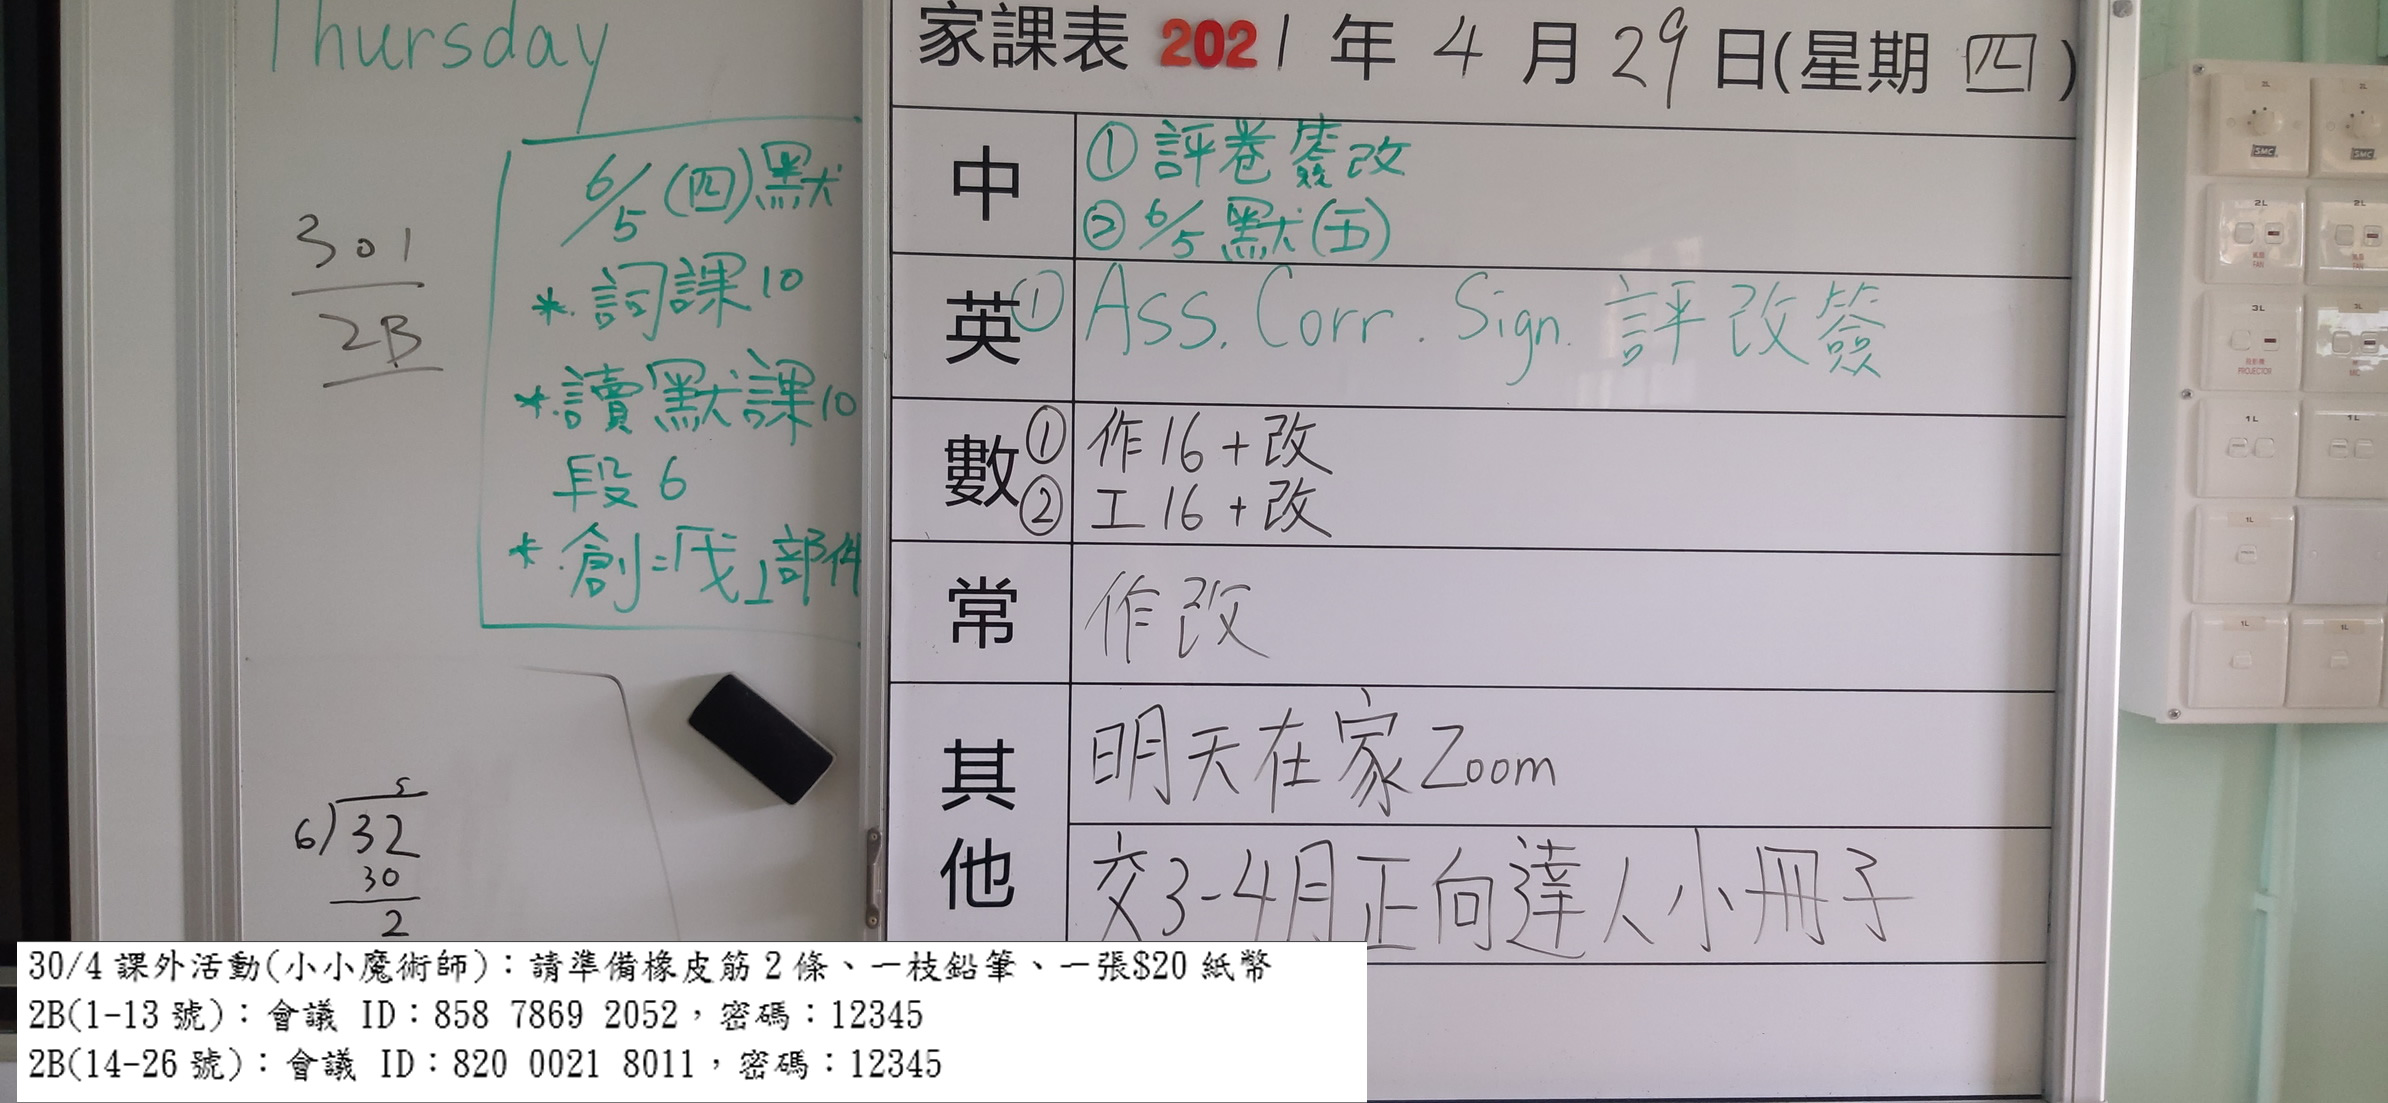 Thursday
301
2B
6/5 (四)默
*.詞課10
*.讀默課10
段6
*.創=戊⊥部件
5
6)32
30
2
家課表 2021 年 4 月 29 日(星期 四 )
中
① 評卷簽改
② 6/5 默(五)
英 ① Ass. Corr. Sign. 評改簽
數
① 作16+改
② 工16+改
常 作改
其他
明天在家Zoom
交3-4月正向達人小冊子
SMC
SMC
2L
2L
FAN
3L
PROJECTOR
MIC
1L
1L
1L
1L
1L
30/4 課外活動(小小魔術師)：請準備橡皮筋 2 條、一枝鉛筆、一張$20 紙幣
2B(1-13 號)：會議 ID：858 7869 2052，密碼：12345
2B(14-26 號)：會議 ID：820 0021 8011，密碼：12345